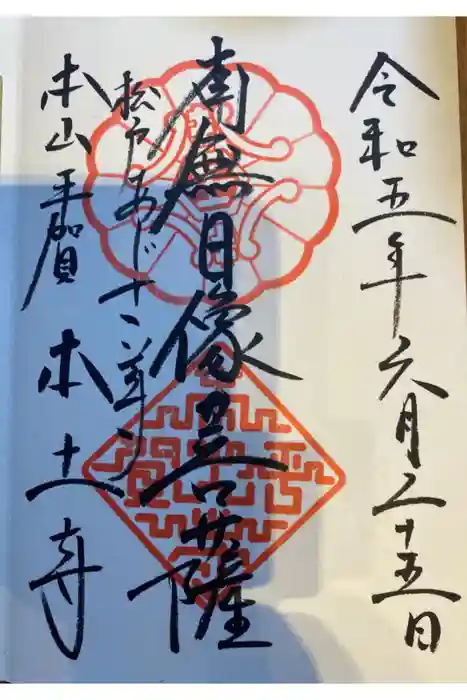 令和五年六月二十五日
南無日像菩薩
松戸あじさい寺
本山平賀 本土寺